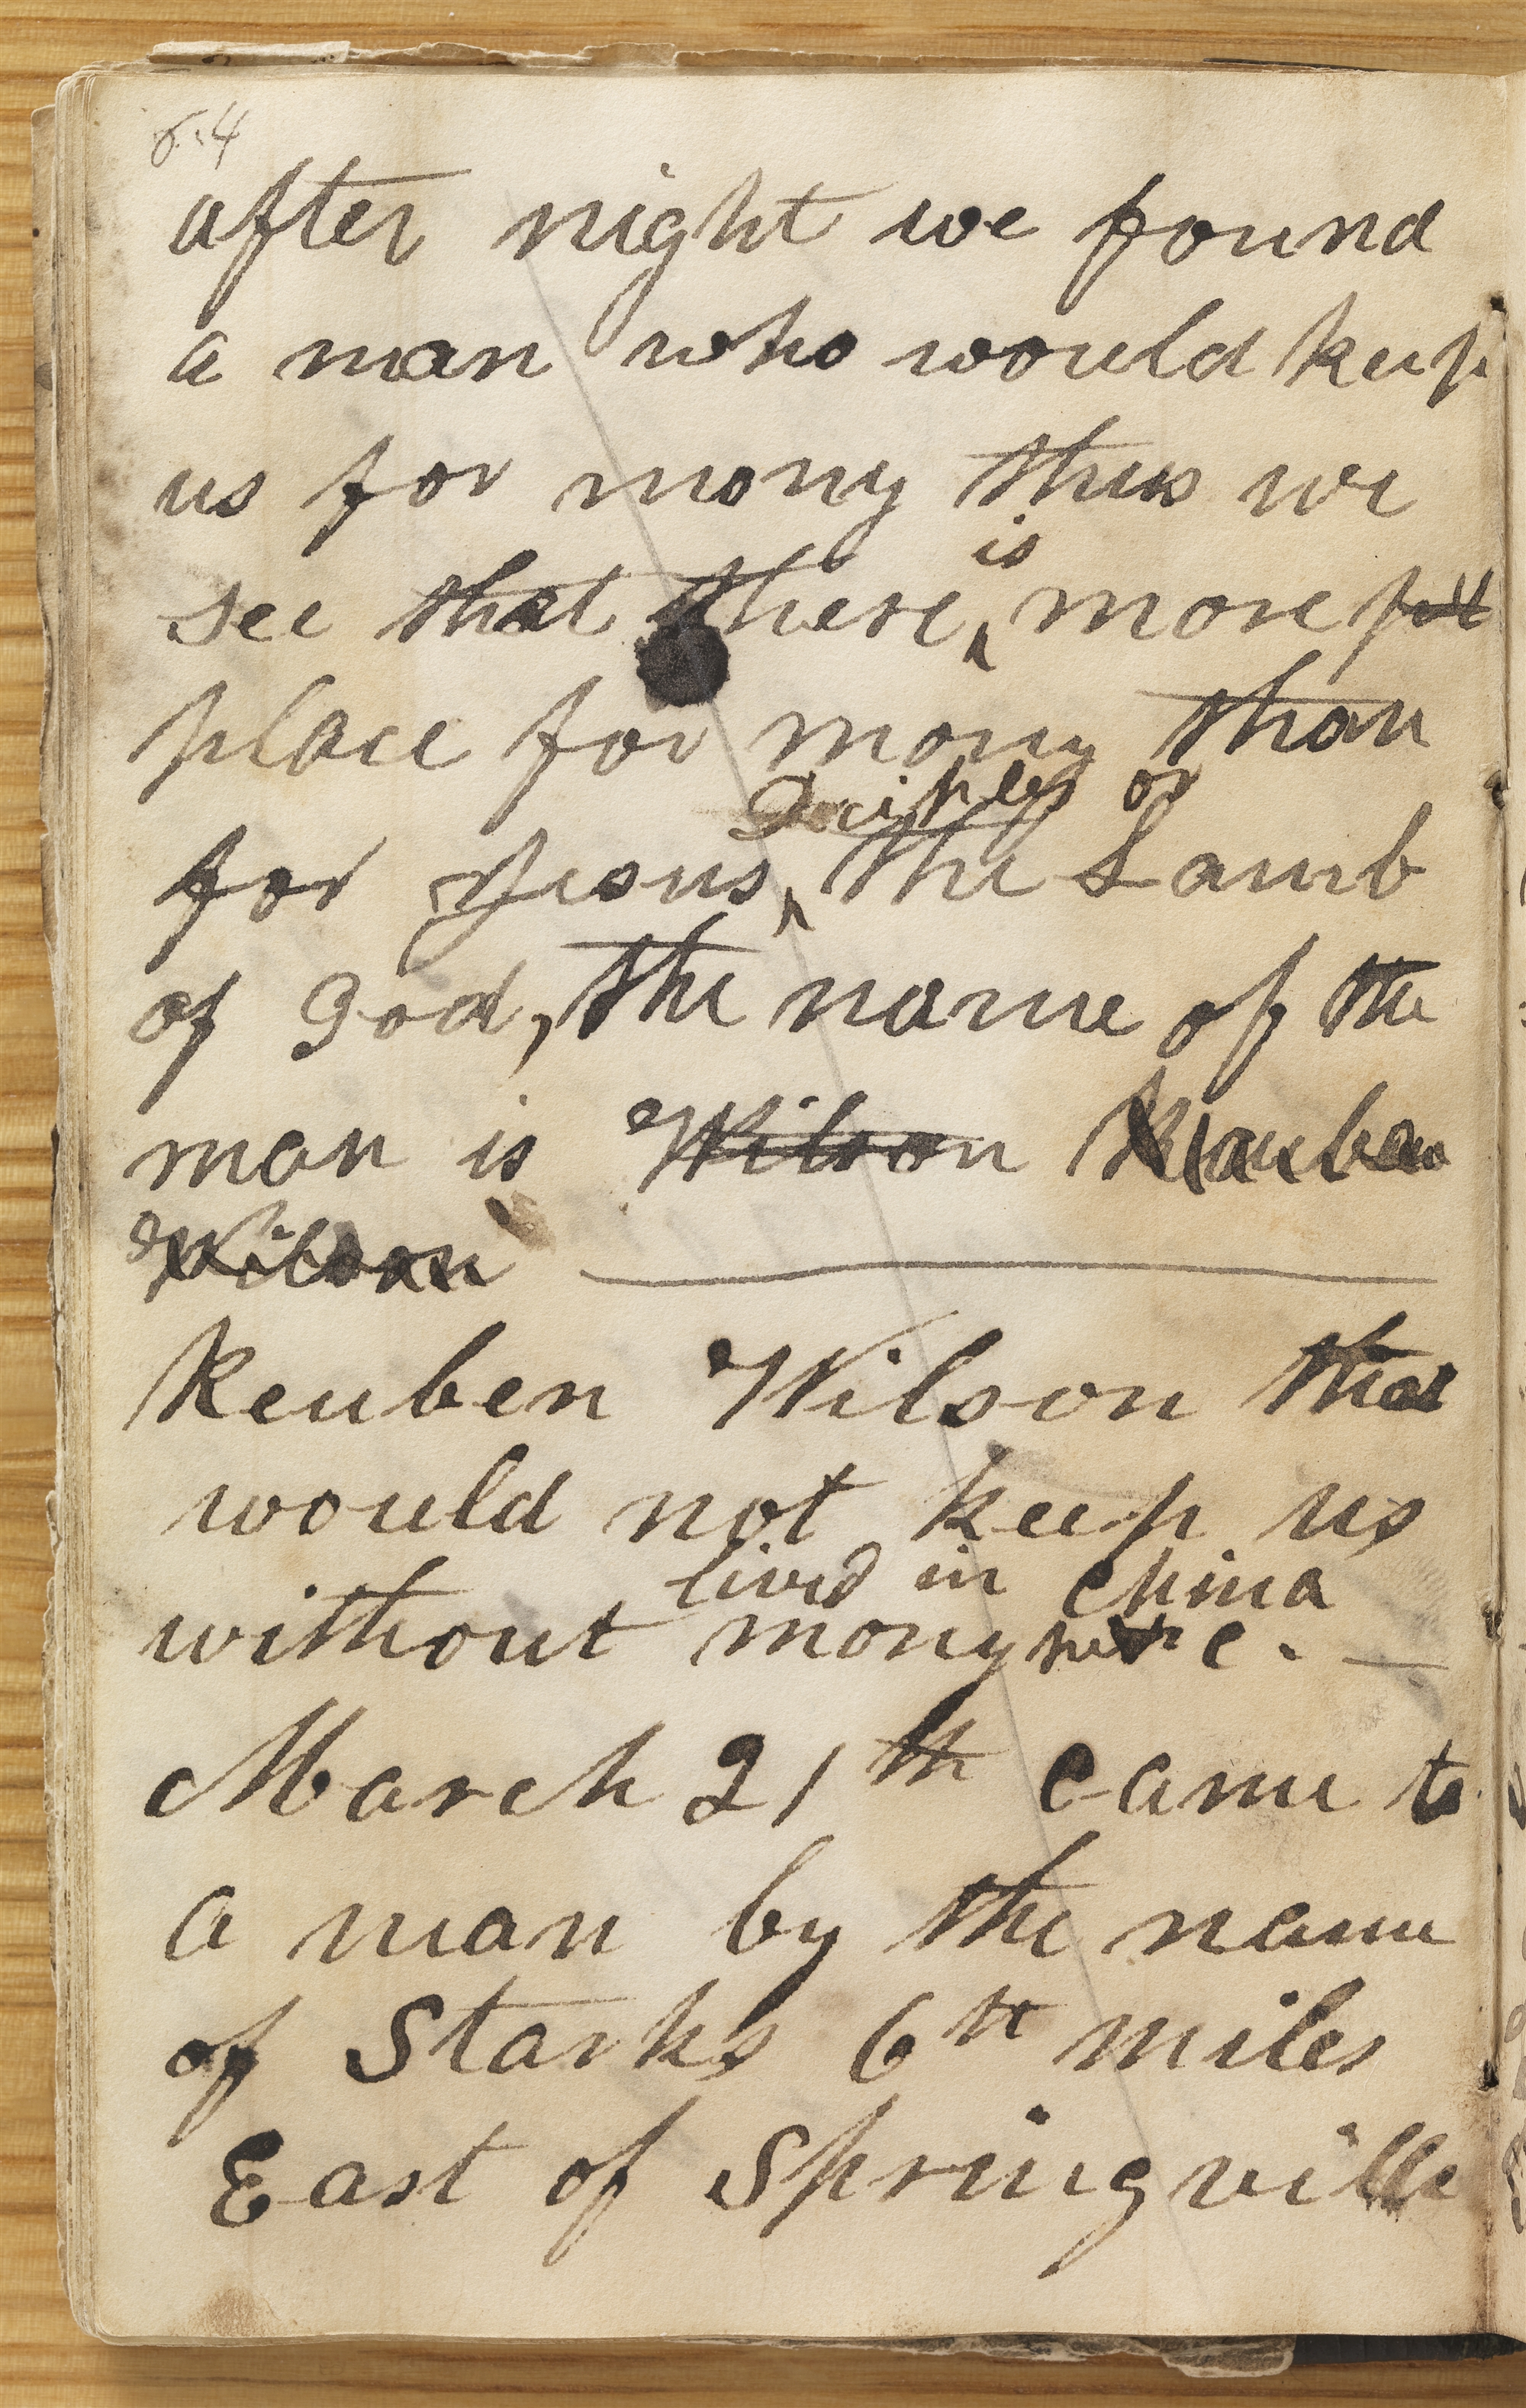 64
after night we found
a man who would keep
us for mony thus we
is
see that there more
place for mony than
Deciples or
for Jesus the Lamb
of God, the name of the
man is Wilson Reuben
Wilson
Reuben Wilson that
would not keep us
lived in China
without mony
March 21th came to
a man by the name
of Starks 6th miles
East of Springville